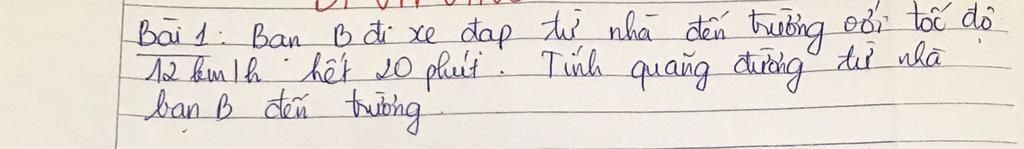 Bài 1: Bạn B đi xe đạp từ nhà đến trường với tốc độ
12 km/h hết 20 phút. Tính quãng đường từ nhà
bạn B đến trường